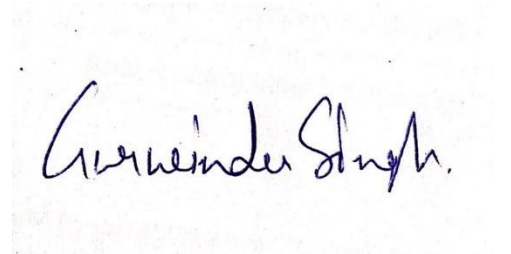 Gurwinder Singh.